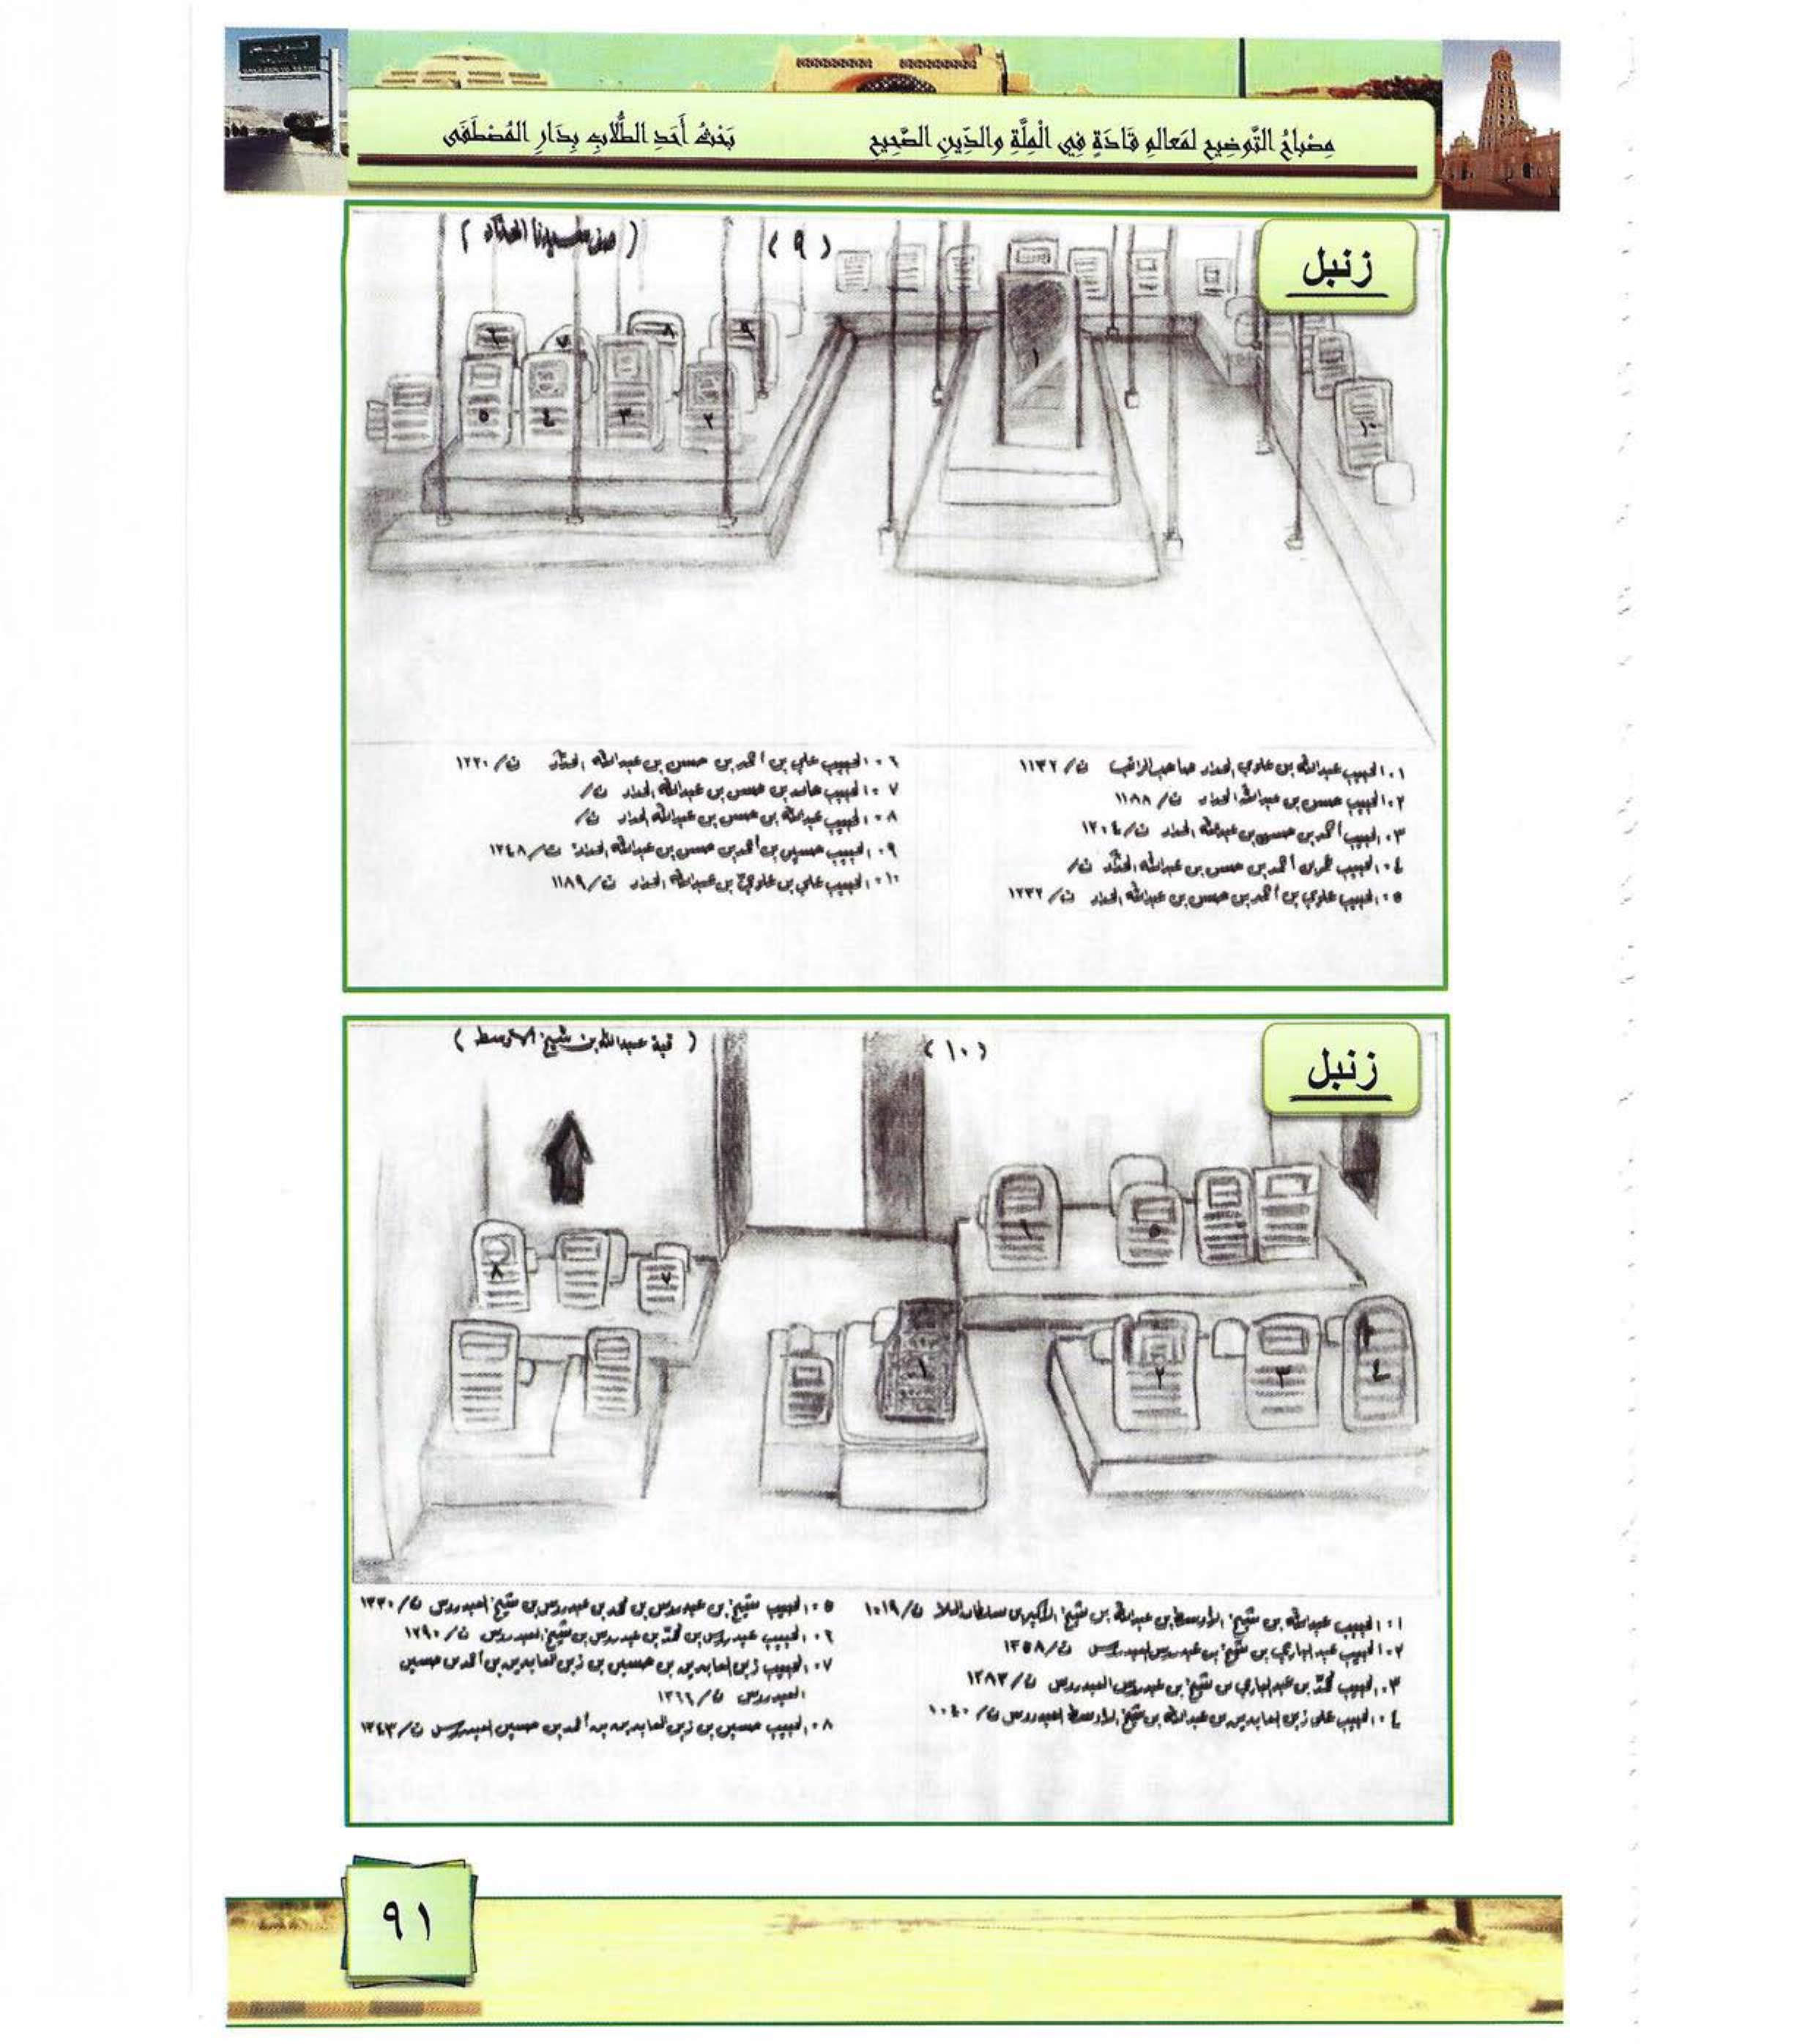 مِصْبَاحُ التَّوضِيحِ لمَعَالمِ قَادَةٍ فِي الْمِلَّةِ والدِّينِ الصَّحِيحِ
بَحْثُ أَحَدِ الطُّلابِ بِدَارِ المُصْطَفَى
زنبل
(٩)
( سيدنا الحداد )
١ ٢ ٣ ٤ ٥ ٦ ٧ ٨ ٩ ١٠
١ - الحبيب عبدالله بن علوي الحداد صاحب الراتب ت/ ١١٣٢
٢ - الحبيب حسن بن عبدالله الحداد ت/ ١١٨٨
٣ - الحبيب أحمد بن حسن بن عبدالله الحداد ت/ ١٢٠٤
٤ - الحبيب عمر بن أحمد بن حسن بن عبدالله الحداد ت/
٥ - الحبيب علوي بن أحمد بن حسن بن عبدالله الحداد ت/ ١٢٣٢
٦ - الحبيب علي بن أحمد بن حسن بن عبدالله الحداد ت/ ١٢٢٠
٧ - الحبيب حامد بن حسن بن عبدالله الحداد ت/
٨ - الحبيب عبدالله بن حسن بن عبدالله الحداد ت/
٩ - الحبيب حسين بن أحمد بن حسن بن عبدالله الحداد ت/ ١٢٤٨
١٠ - الحبيب علي بن علوي بن عبدالله الحداد ت/ ١١٨٩
زنبل
(١٠)
( قبة عبدالله بن شيخ الأوسط )
١ ٥
٨ ٧
١ ٢ ٣ ٤
١ - الحبيب عبدالله بن شيخ الأوسط بن عبدالله بن شيخ الأكبر بن ت/ ١٠١٩
٢ - الحبيب عبدالباري بن شيخ بن عيدروس العيدروس ت/ ١٣٥٨
٣ - الحبيب محمد بن عبدالباري بن شيخ بن عيدروس العيدروس ت/ ١٣٨٣
٤ - الحبيب علي زين العابدين بن عبدالله بن شيخ الأوسط العيدروس ت/ ١٠٤٠
٥ - الحبيب شيخ بن عيدروس بن محمد بن عيدروس بن شيخ العيدروس ت/ ١٣٣٠
٦ - الحبيب عيدروس بن محمد بن عيدروس بن شيخ العيدروس ت/ ١٢٩٠
٧ - الحبيب زين العابدين بن حسين بن زين العابدين بن أحمد بن حسين
العيدروس ت/ ١٣٦٦
٨ - الحبيب حسين بن زين العابدين بن أحمد بن حسين العيدروس ت/ ١٣٤٣
٩١